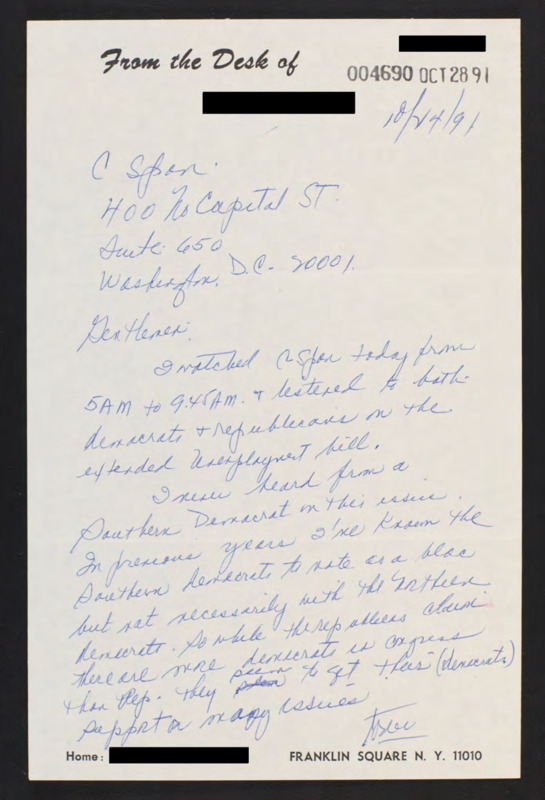 From the Desk of
004690 OCT 28 91
10/24/91
C Span.
400 No Capital ST.
Suite 650
Washington, D.C. 20001.
Gentlemen:
I watched C Span today from
5AM to 9:45AM. + listened to both
democrats + republicans on the
extended Unemployment bill.
I never heard from a
Southern Democrat on this issue.
In previous years I've known the
Southern Democrats to vote as a bloc
but not necessarily with the Northern
democrats. So while the republicans claim
there are more democrats in congress
than Rep. they to get this (democrats)
support on many issues
over
Home:
FRANKLIN SQUARE N. Y. 11010